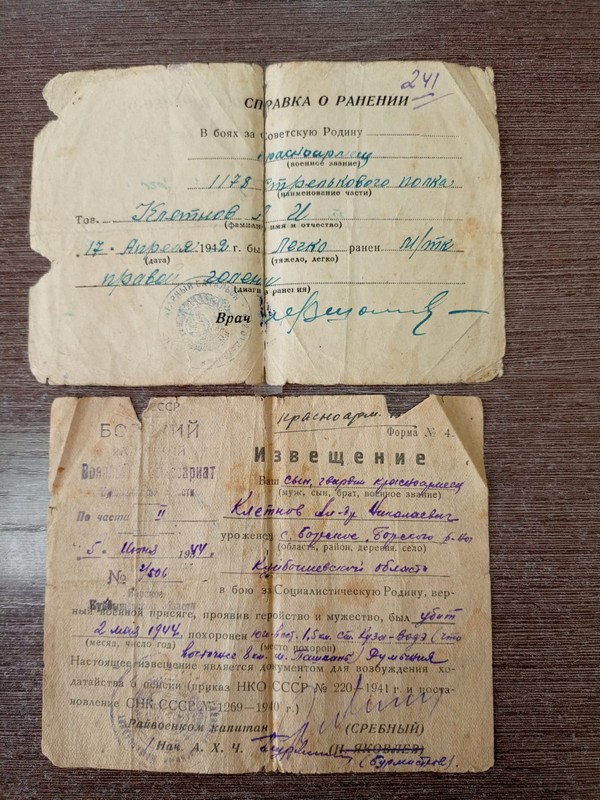 241
СПРАВКА О РАНЕНИИ
В боях за Советскую Родину
красноармеец
(военное звание)
1178 Стрелькового полка
(наименование части)
Тов. Клетнов А И
(фамилия, имя и отчество)
17 Апреля 1942 г. был легко ранен м/тк
(дата) (тяжело, легко)
правой голени
(диагноз ранения)
Врач
СССР
БОРСКИЙ
Красноарм.
Форма № 4.
Военный Комиссариат
Извещение
Ваш сын, гвардии красноармеец
(муж, сын, брат, военное звание)
По части II
Клетнов Ал-др Николаевич
уроженец с. Борское, Борского р-на
(область, район, деревня, село)
5 Июня 1944
Куйбышевской область
№ 2/506
в бою за Социалистическую Родину, вер-
ный военной присяге, проявив геройство и мужество, был убит
2 мая 1944 похоронен юго-вост. 1,5 км. ст. Куза-Водэ (что
(месяц, число год) (место похорон)
восточнее 8 км. м. Пашкань) Румыния
Настоящее извещение является документом для возбуждения хо-
датайства о пенсии (приказ НКО СССР № 220—1941 г. и поста-
новление СНК СССР № 1269—1940 г.)
Райвоенком капитан (СРЕБНЫЙ)
Нач. А. Х. Ч. (И. ЯКОВЛЕВ)
(Бурмистров).